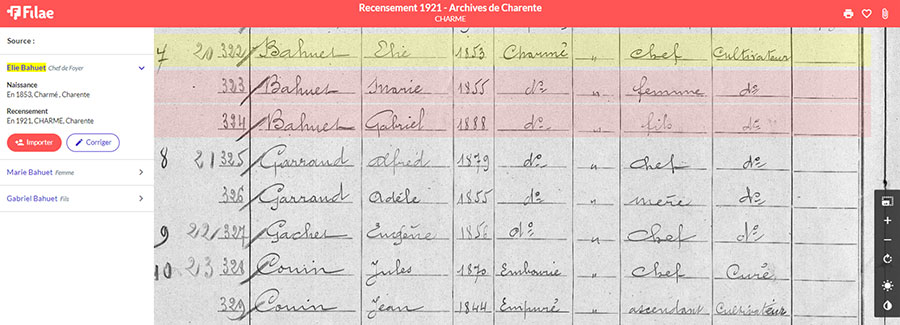 Filae
Recensement 1921 - Archives de Charente
CHARME
Source :
Elie Bahuet Chef de Foyer
Naissance
En 1853, Charmé , Charente
Recensement
En 1921, CHARME, Charente
Importer
Corriger
Marie Bahuet Femme
Gabriel Bahuet Fils
7 20 322 Bahuet Elie 1853 Charmé " chef Cultivateur
323 Bahuet Marie 1855 do " femme do
324 Bahuet Gabriel 1888 do " fils do
8 21 325 Garraud Alfred 1879 do " chef do
326 Garraud Adèle 1855 do " mère do
9 22 327 Gachet Eugène 1856 do " Chef do
10 23 328 Couin Jules 1870 " Chef Curé
329 Couin Jean 1844 Empuré " ascendant Cultivateur